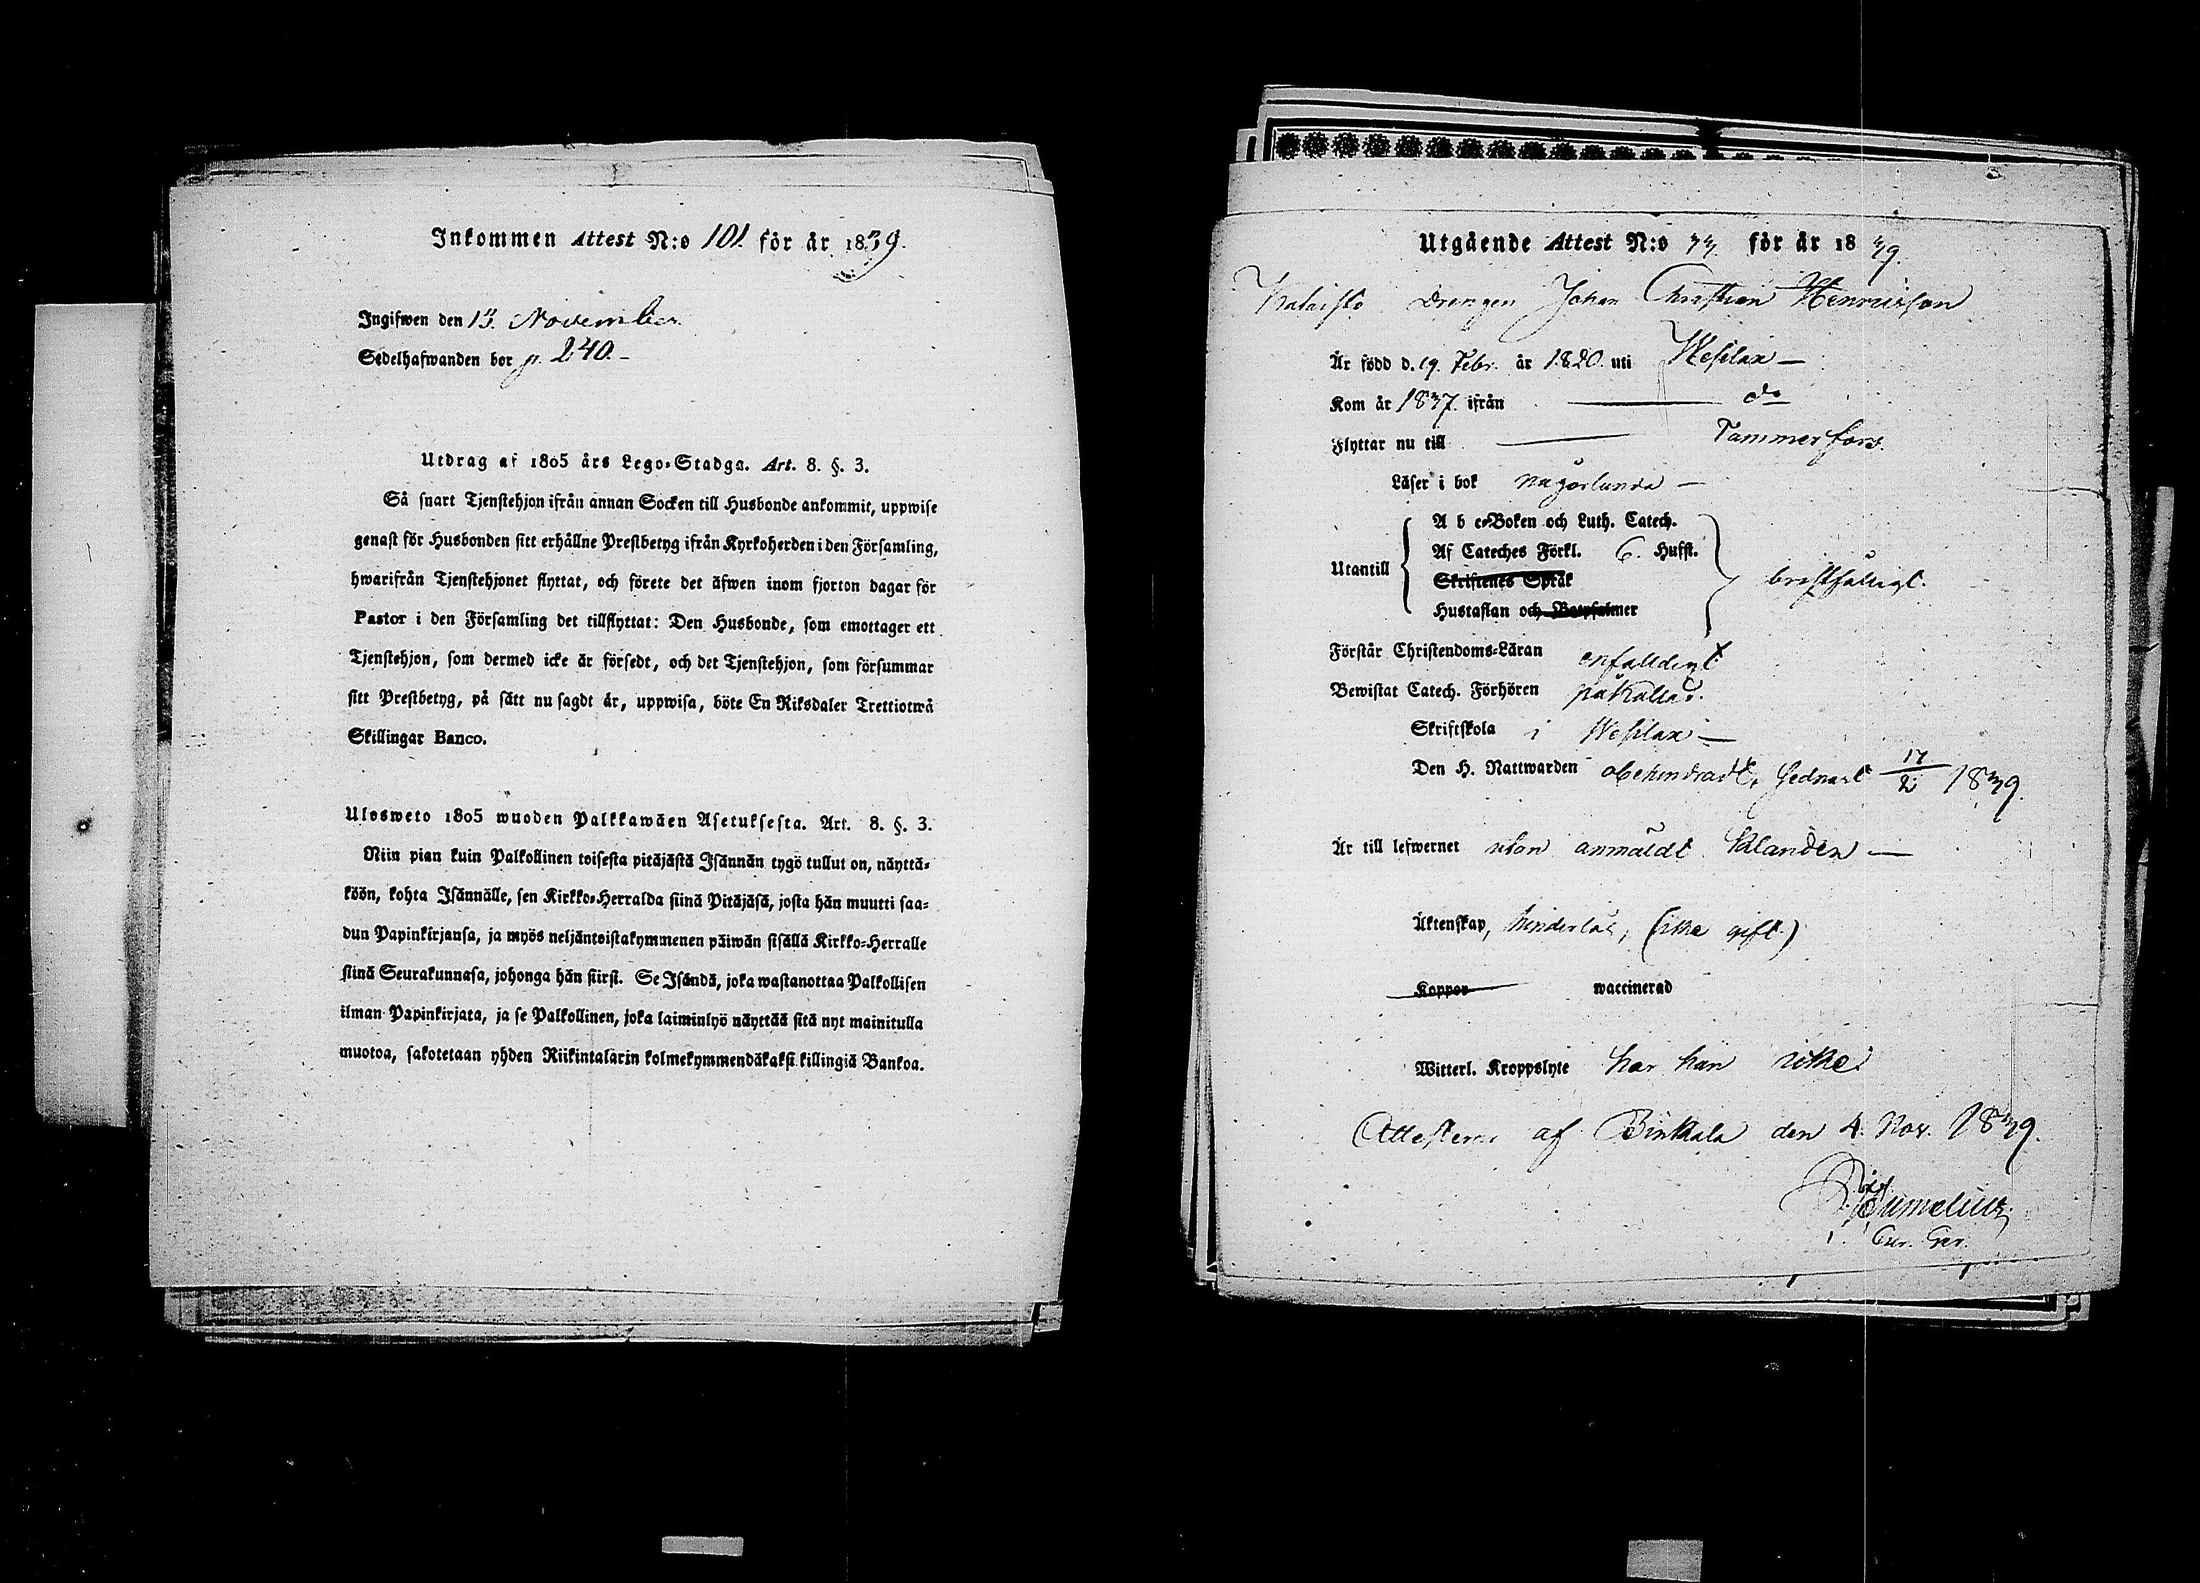 Inkommen Attest N:o 101 för år 1839.
Ingifwen den 13. November
Sedelhafwanden bor p. 240.-
Utdrag af 1805 års Lego-Stadga. Art. 8. §. 3.
Så snart Tjenstehjon ifrån annan Socken till Husbonde ankommit, uppwise
genast för Husbonden sitt erhållne Prestbetyg ifrån Kyrkoherden i den Församling,
hwarifrån Tjenstehjonet flyttat, och förete det äfwen inom fjorton dagar för
Pastor i den Församling det tillflyttat: Den Husbonde, som emottager ett
Tjenstehjon, som dermed icke är försedt, och det Tjenstehjon, som försummar
sitt Prestbetyg, på sätt nu sagdt är, uppwisa, böte En Riksdaler Trettiotwå
Skillingar Banco.
Ulosweto 1805 wuoden Palkkawäen Asetuksesta. Art. 8. §. 3.
Niin pian kuin Palkollinen toisesta pitäjästä Isännän tygö tullut on, näyttä-
köön, kohta Isännälle, sen Kirkko-Herralda siinä Pitäjäsä, josta hän muutti saa-
dun Papinkirjansa, ja myös neljäntoistakymmenen päiwän sisällä Kirkko-Herralle
siinä Seurakunnasa, johonga hän siirst. Se Isändä, joka wastanottaa Palkollisen
ilman Papinkirjata, ja se Palkollinen, joka laiminlyö näyttää sitä nyt mainitulla
muotoa, sakotetaan yhden Riikintalarin kolmekymmendäkaksi killingiä Bankoa.
Utgående Attest N:o 73. för år 1839.
Kataisto Drengen Johan Christian Henricsson
Är född d. 19. Febr. år 1820. uti Wesilax —
Kom år 1837. ifrån — do
Flyttar nu till — Tammerfors.
Läser i bok någorlunda —
A b c-Boken och Luth. Catech.
Af Cateches Förkl. 6. Hufst.
Utantill
Skriftenes Språk
bristfäligt.
Hustaflan och Botpsalmer
Förstår Christendoms-Läran enfaldigt
Bewistat Catech. Förhören påkallad.
Skriftskola i Wesilax —
Den H. Nattwarden obehindradt, sednast 17/2 1839.
Är till lefwernet utan anmäldt klander —
Äktenskap, hinderlös, (icke gift)
Koppor waccinerad
Witterl. Kroppslyte har han icke.
Attesterar af Birkkala den 4. Nov. 1839.